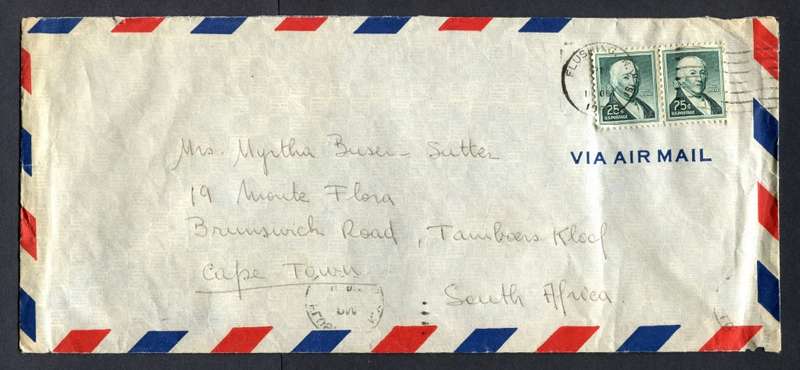 FLUSHING
25¢ 25¢
U.S. POSTAGE U.S. POSTAGE
VIA AIR MAIL
Mrs. Myrtha Buser - Sutter
19 Monte Flora
Brunswick Road, Tamboers Kloof
Cape Town
South Africa.